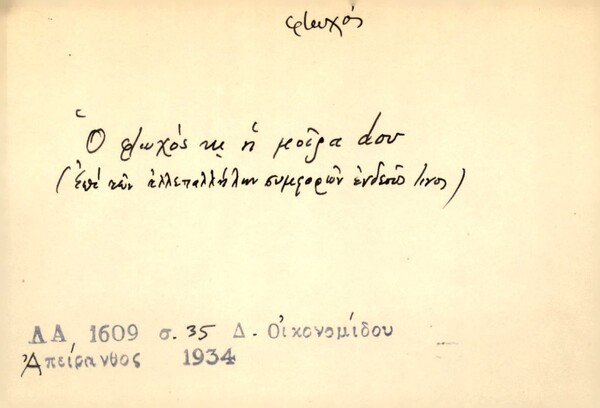 φτωχός
Ὁ φτωχός κι ἡ μοῖρα dου
(Ἐπί τῶν ἀλλεπαλλήλων συμφορῶν ἐνδεοῦς τινος)
ΛΑ 1609 σ. 35 Δ. Οἰκονομίδου
Ἀπείρανθος 1934